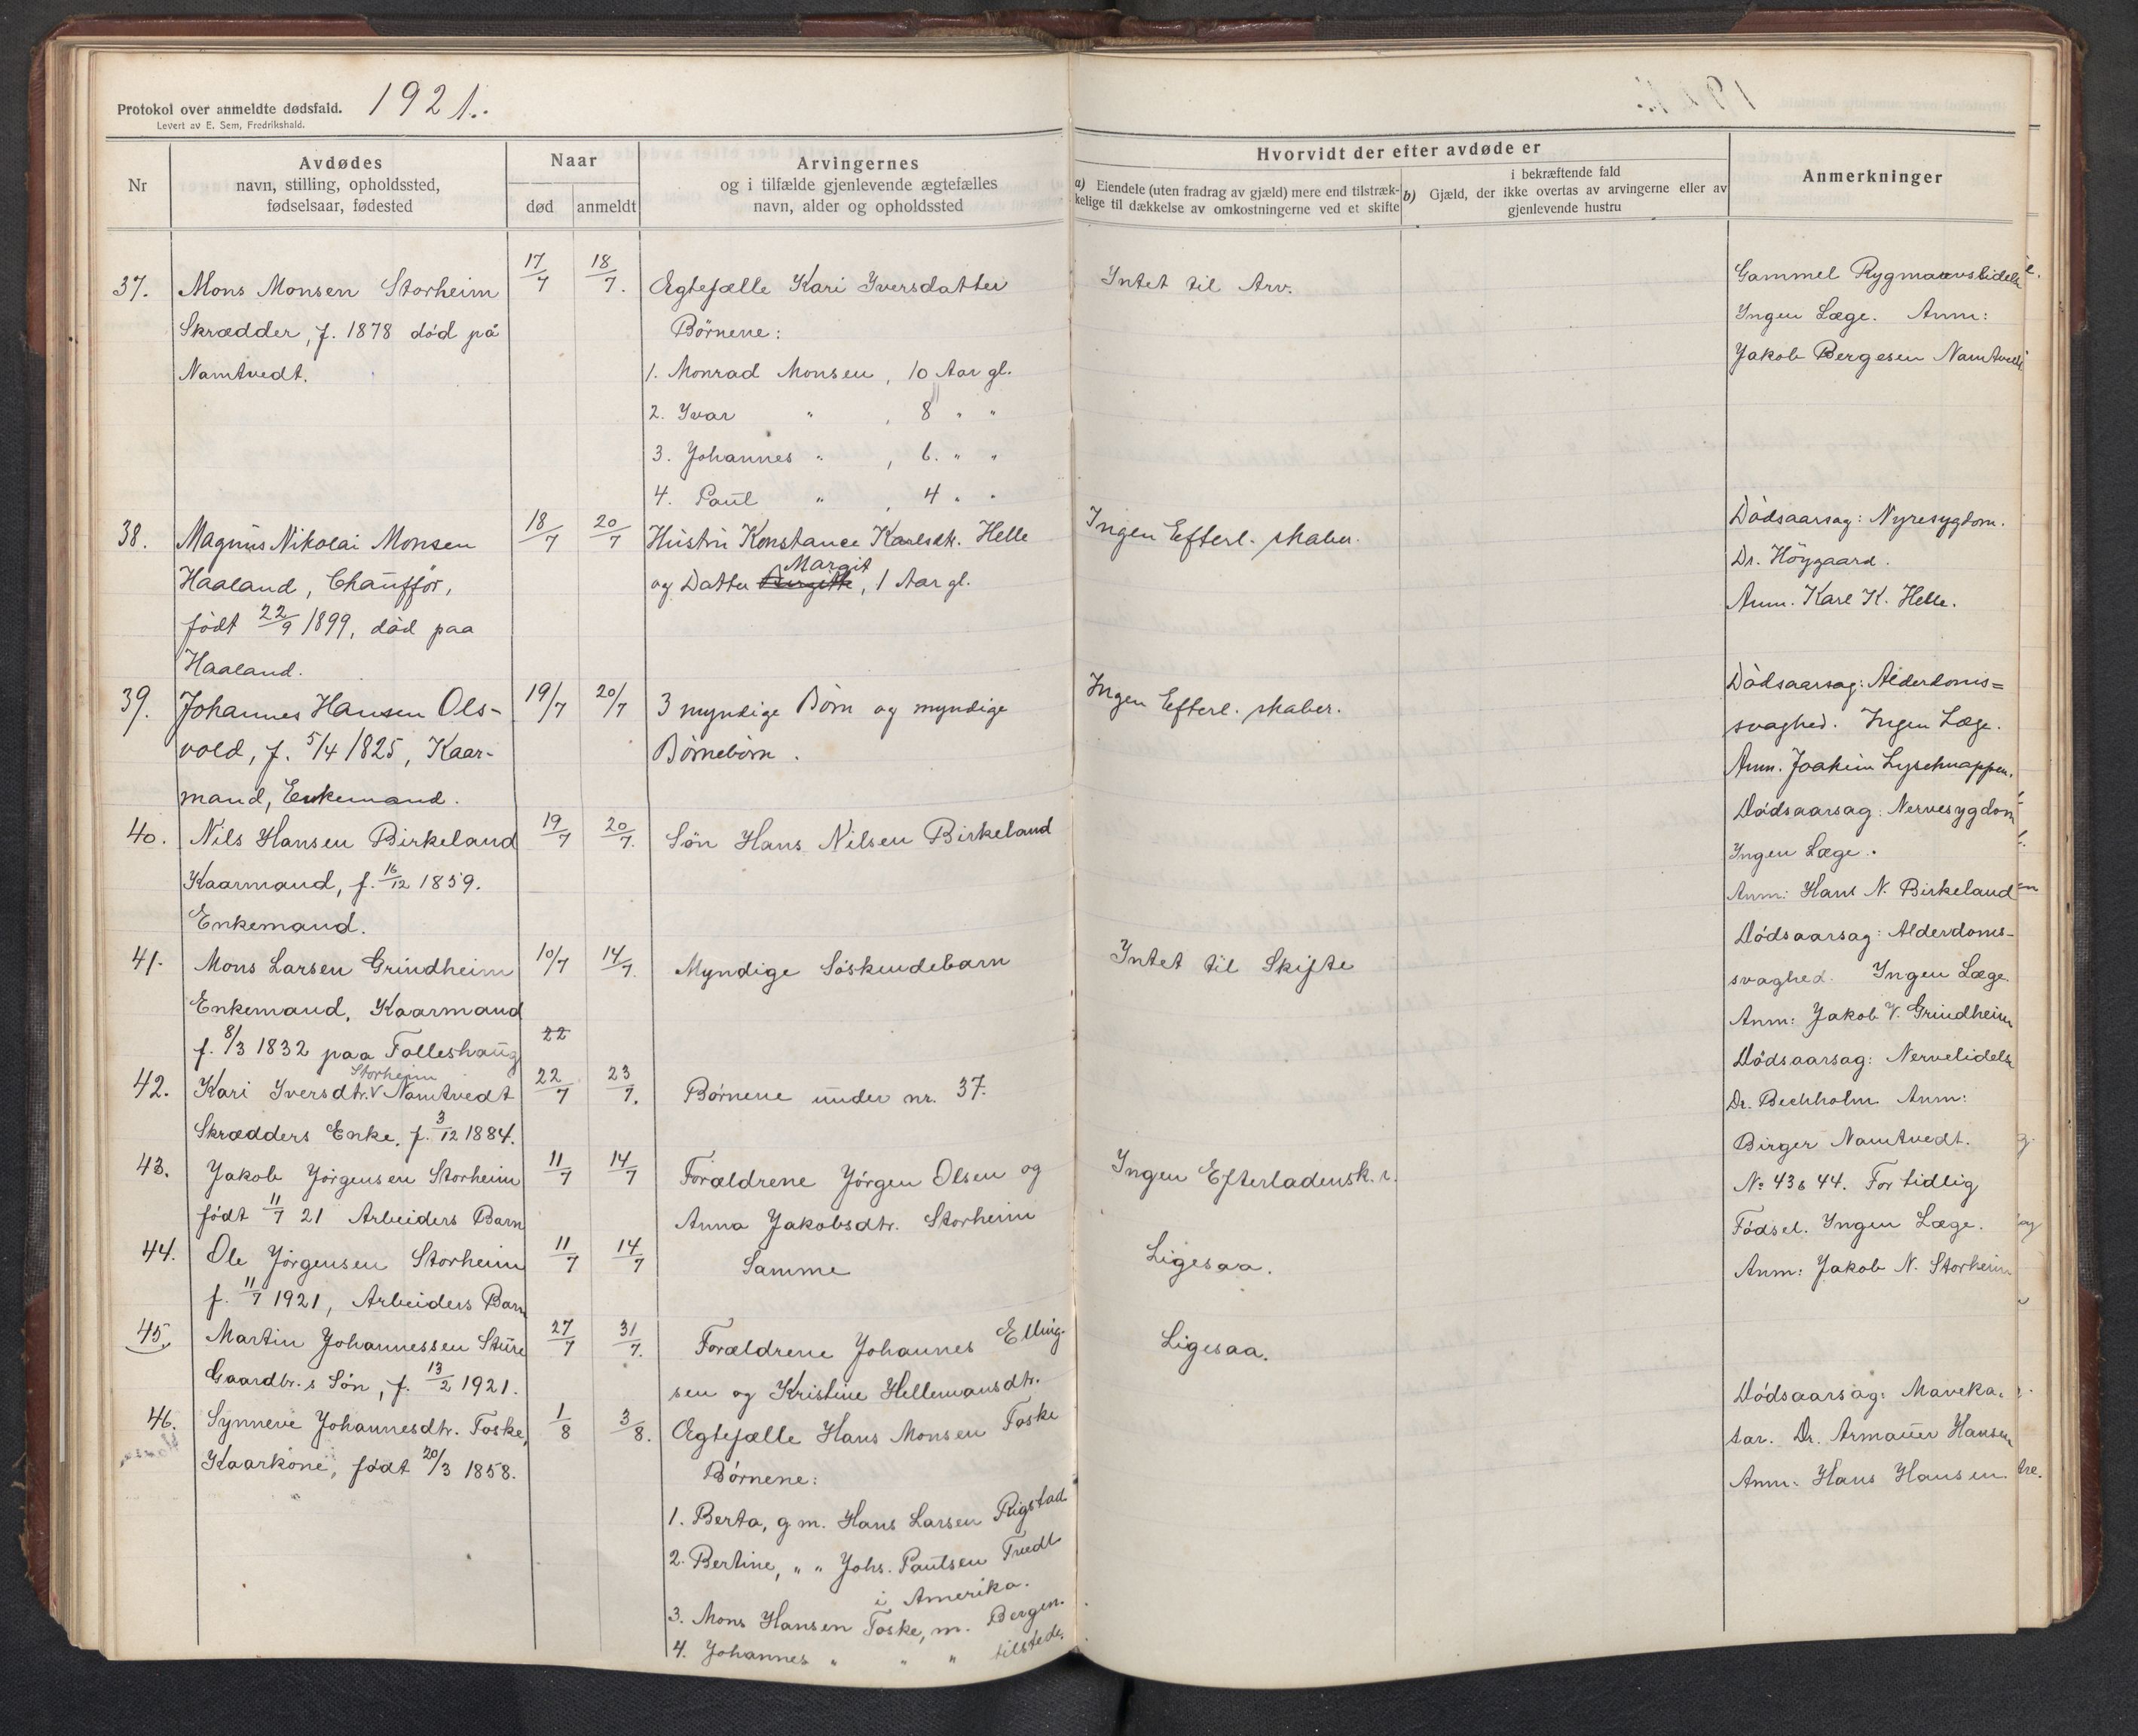 Protokol over anmeldte dødsfald. 1921.
Levert av E. Sem, Fredrikshald.
Nr
Avdødes
navn, stilling, opholdssted,
fødselsaar, fødested
Naar
død anmeldt
Arvingernes
og i tilfælde gjenlevende ægtefælles
navn, alder og opholdssted
Hvorvidt der efter avdøde er
a) Eiendele (uten fradrag av gjæld) mere end tilstræk-
kelige til dækkelse av omkostningerne ved et skifte
i bekræftende fald
b) Gjæld, der ikke overtas av arvingerne eller av
gjenlevende hustru
Anmerkninger
37. Mons Monsen Storheim
Skrædder, f. 1878 død på
Namtvedt.
17/7 18/7.
Ægtefælle Kari Iversdatter
Børnene:
1. Monrad Monsen, 10 Aar gl.
2. Ivar " , 8 " "
3. Johannes " , 6. " "
4. Paul " , 4 " "
Intet til Arv.
Gammel Rygmarvslidelse
Ingen Læge. Anm:
Jakob Bergesen Namtvedt
38. Magnus Nikolai Monsen
Haaland, Chauffør,
født 22/9 1899, død paa
Haaland.
18/7 20/7
Hustru Konstance Karlsdtr. Helle
Margit
og Datter Birgitte, 1 Aar gl.
Ingen Efterl. skaber.
Dødsaarsag: Nyresygdom.
Dr. Höygaard.
Anm. Karl K. Helle.
39. Johannes Hansen Ols-
vold, f. 5/4 1825, Kaar-
mand, Enkemand.
19/7 20/7
3 myndige Børn og myndige
Børnebørn.
Ingen Efterl. skaber.
Dødsaarsag: Alderdoms=
svaghed. Ingen Læge.
Anm. Joakim Lyseknappen.
40. Nils Hansen Birkeland
Kaarmand, f. 16/12 1859.
Enkemand.
19/7 20/7.
Søn Hans Nilsen Birkeland
Dødsaarsag: Nervesygdom
Ingen Læge.
Anm: Hans N. Birkeland
41. Mons Larsen Grindheim
Enkemand, Kaarmand
f. 8/3 1832 paa Folleshaug
10/7 14/7.
22
Myndige Søskendebarn
Intet til Skifte
Dødsaarsag: Alderdoms-
svaghed. Ingen Læge
Anm: Jakob V. Grindheim
Storheim
42. Kari Iversdtr. V Namtvedt
Skrædders Enke, f. 3/12 1884.
22/7 23/7.
Børnene under nr. 37.
Dødsaarsag: Nervelidelse
Dr. Bechholm Anm:
Birger Namtvedt.
43. Jakob Jørgensen Storheim
født 11/7 21 Arbeiders Barn
11/7 14/7
Forældrene Jörgen Olsen og
Anna Jakobsdtr. Storheim
Ingen Efterladensk. r.
No 43 & 44. For tidlig
Fødsel. Ingen Læge.
Anm: Jakob N. Storheim
44. Ole Jørgensen Storheim
f. 11/7 1921, Arbeiders Barn
11/7 14/7
Samme
Ligesaa.
45. Martin Johannessen Sture
Gaardbr.s Søn, f. 13/2 1921.
27/7 31/7.
Forældrene Johannes Elling-
sen og Kristine Hellemansdtr.
Ligesaa.
46. Synneve Johannesdtr. Toske,
Kaarkone, født 20/3 1858.
1/8 3/8.
Ægtefælle Hans Monsen Toske
Børnene:
1. Berta, g m. Hans Larsen Rigstad
2. Bertine, " " Johs. Paulsen Tvedt
i Amerika.
3. Mons Hansen Toske, m. Bergen.
4. Johannes " " " tilstede.
Dødsaarsag: Maveka-
tar. Dr. Armauer Hansen
Anm. Hans Hansen